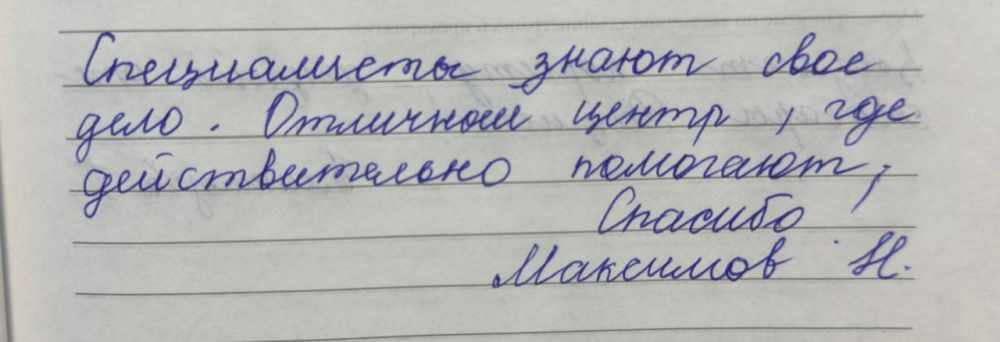 Специалисты знают свое
дело. Отличный центр, где
действительно помогают,
Спасибо
Максимов Н.